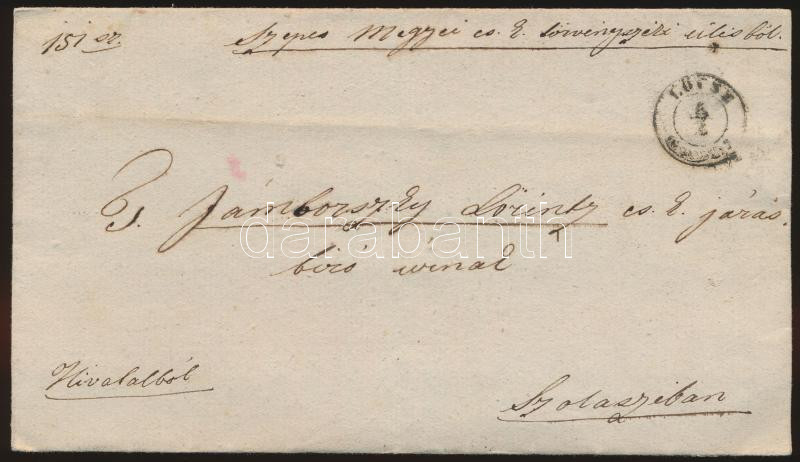 151 sz. Szepes Megyei cs. k. törvényszéki ülésből.
LÖCSE
T. Jámborszky Lőrintz cs. k. járás.
biró úrnak
darabanth
Hivatalból
Szolasziban